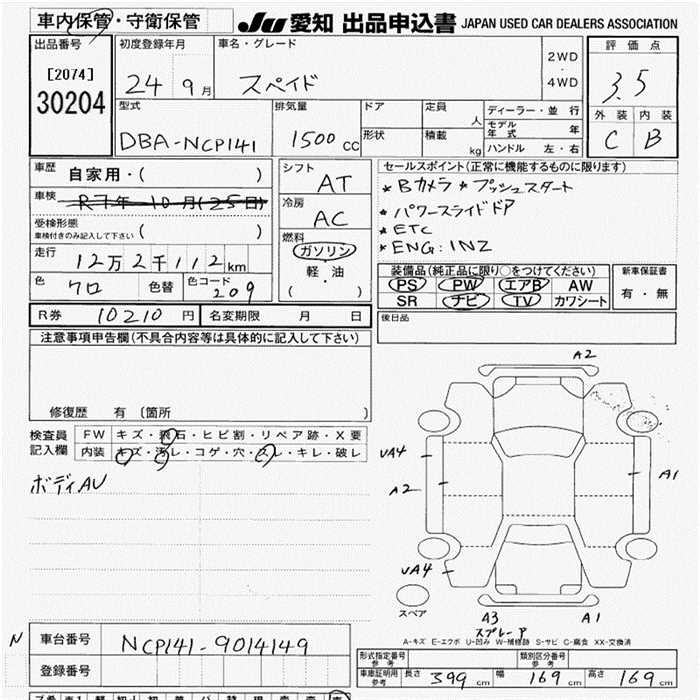 車内保管・守衛保管
JU 愛知 出品申込書 JAPAN USED CAR DEALERS ASSOCIATION
出品番号
[2074]
30204
初度登録年月
24 9月
車名・グレード
スペイド
2WD
・
4WD
評価点
3.5
外装 内装
C B
型式
DBA-NCP141
排気量
1500cc
ドア
形状
定員
人
積載
kg
ディーラー・並行
モデル年式 年
ハンドル 左・右
車歴 自家用・( )
車検 R7年10月(25日)
受検形態
車検付きのみ記入して下さい ( )
走行 12万2千112km
色 クロ 色替 色コード 209
シフト AT
冷房 AC
燃料
ガソリン
軽・油
( )
セールスポイント(正常に機能するものに限ります)
* Bカメラ * プッシュスタート
* パワースライドドア
* ETC
* ENG:1NZ
装備品(純正品に限り○をつけてください)
PS PW エアB AW
SR ナビ TV カワシート
新車保証書
有・無
R券 10210円 名変期限 月 日
後日品
注意事項申告欄(不具合内容等は具体的に記入して下さい)
修復歴 有 (箇所 )
検査員記入欄
FW キズ・飛石・ヒビ割・リペア跡・X要
内装 キズ・汚レ・コゲ・穴・スレ・キレ・破レ
ボディAU
A2
UA4
A2
A1
UA4
スペア
A3
スプレーア
A1
A-キズ E-エクボ U-凹み W-補修跡 S-サビ C-腐食 XX-交換済
N
車台番号 NCP141-9014149
登録番号
形式指定番号 参考
類別区分番号 参考
車庫証明用 参考 長さ 399cm 幅 169cm 高さ 169cm